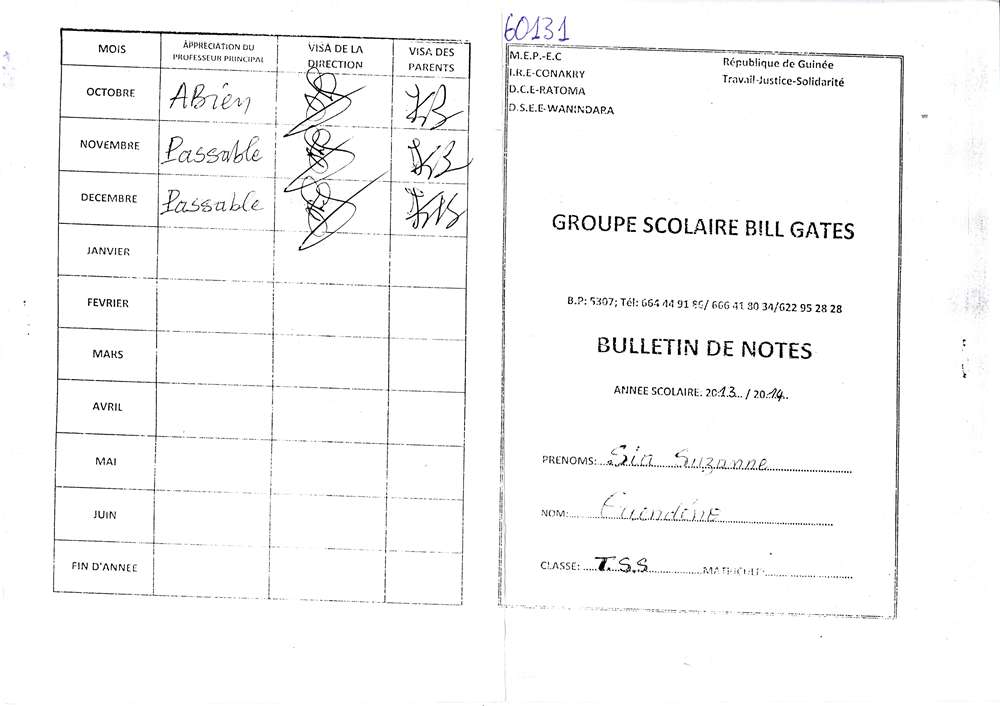 MOIS APPRECIATION DU PROFESSEUR PRINCIPAL VISA DE LA DIRECTION VISA DES PARENTS
OCTOBRE ABien
NOVEMBRE Passable
DECEMBRE Passable
JANVIER
FEVRIER
MARS
AVRIL
MAI
JUIN
FIN D'ANNEE
60131
M.E.P.-E.C
I.R.E-CONAKRY
D.C.E-RATOMA
D.S.E.E-WANINDARA
République de Guinée
Travail-Justice-Solidarité
GROUPE SCOLAIRE BILL GATES
B.P: 5307; Tél: 664 44 91 86/ 666 41 80 34/622 95 28 28
BULLETIN DE NOTES
ANNEE SCOLAIRE: 2013 / 2014
PRENOMS: Sia Suzanne
NOM:
CLASSE: T.S.S MATRICULE: